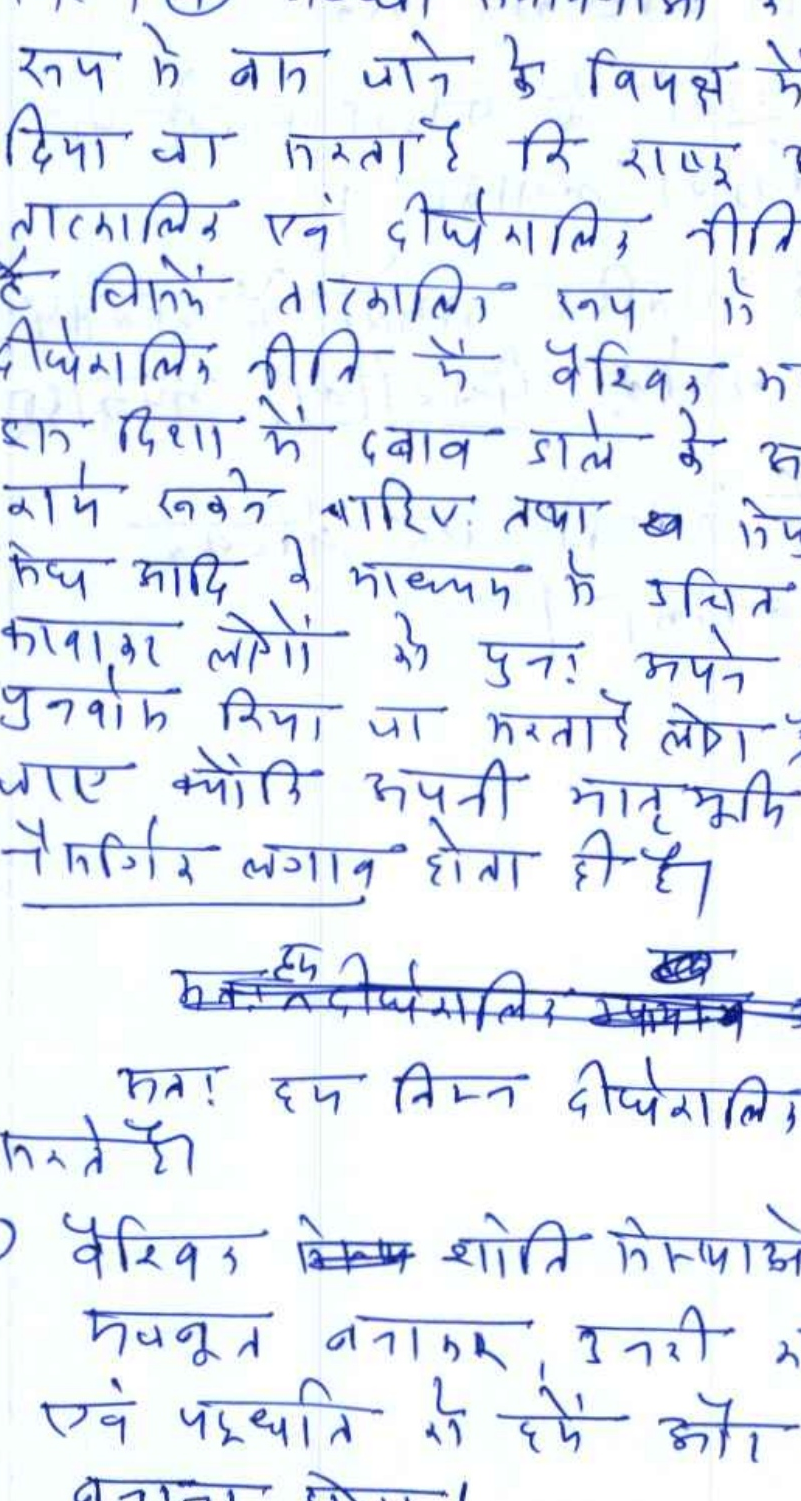 रूप में बस जाने के विपक्ष में
दिया जा सकता है कि राष्ट्र
तात्कालिक एवं दीर्घकालिक नीति
है जिसमें तात्कालिक रूप से
दीर्घकालिक नीति में वैश्विक
इस दिशा में दबाव डाले के
कार्य करने चाहिए तथा
संघ आदि के माध्यम से उचित
लोगों को पुनः अपने
पुनर्वास किया जा सकता है लोग
जाए क्योंकि अपनी मातृभूमि
नैसर्गिक लगाव होता ही है।
अतः हम दीर्घकालिक
अतः हम निम्न दीर्घकालिक
सकते है।
वैश्विक शांति संस्थाओ
मजबूत बनाकर, उनकी
एवं पद्धति को हमें और
बनाना होगा।